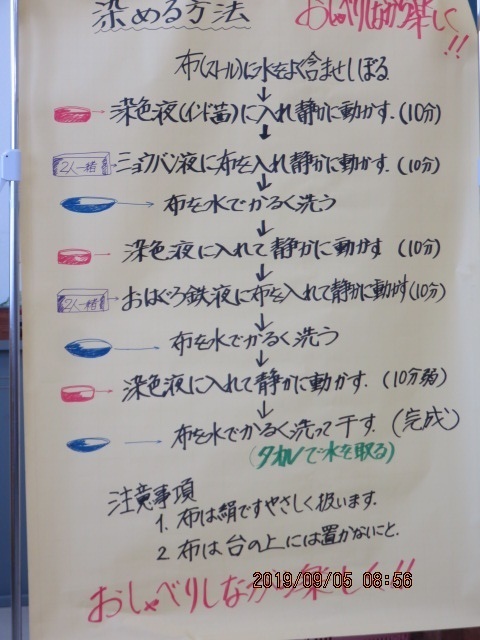 染める方法
おしゃべりしながら楽しく!!
布(ストール)に水をよく含ませしぼる
染色液(インド茜)に入れ静かに動かす. (10分)
2人一緒 ミョウバン液に布を入れ静かに動かす. (10分)
布を水でかるく洗う
染色液に入れて静かに動かす (10分)
2人一緒 おはぐろ鉄液に布を入れて静かに動かす(10分)
布を水でかるく洗う
染色液に入れて静かに動かす. (10分弱)
布を水でかるく洗って干す. (完成)
(タオルで水を取る)
注意事項
1. 布は絹ですやさしく扱います.
2 布は台の上には置かないこと.
おしゃべりしながら楽しく!!
2019/09/05 08:56